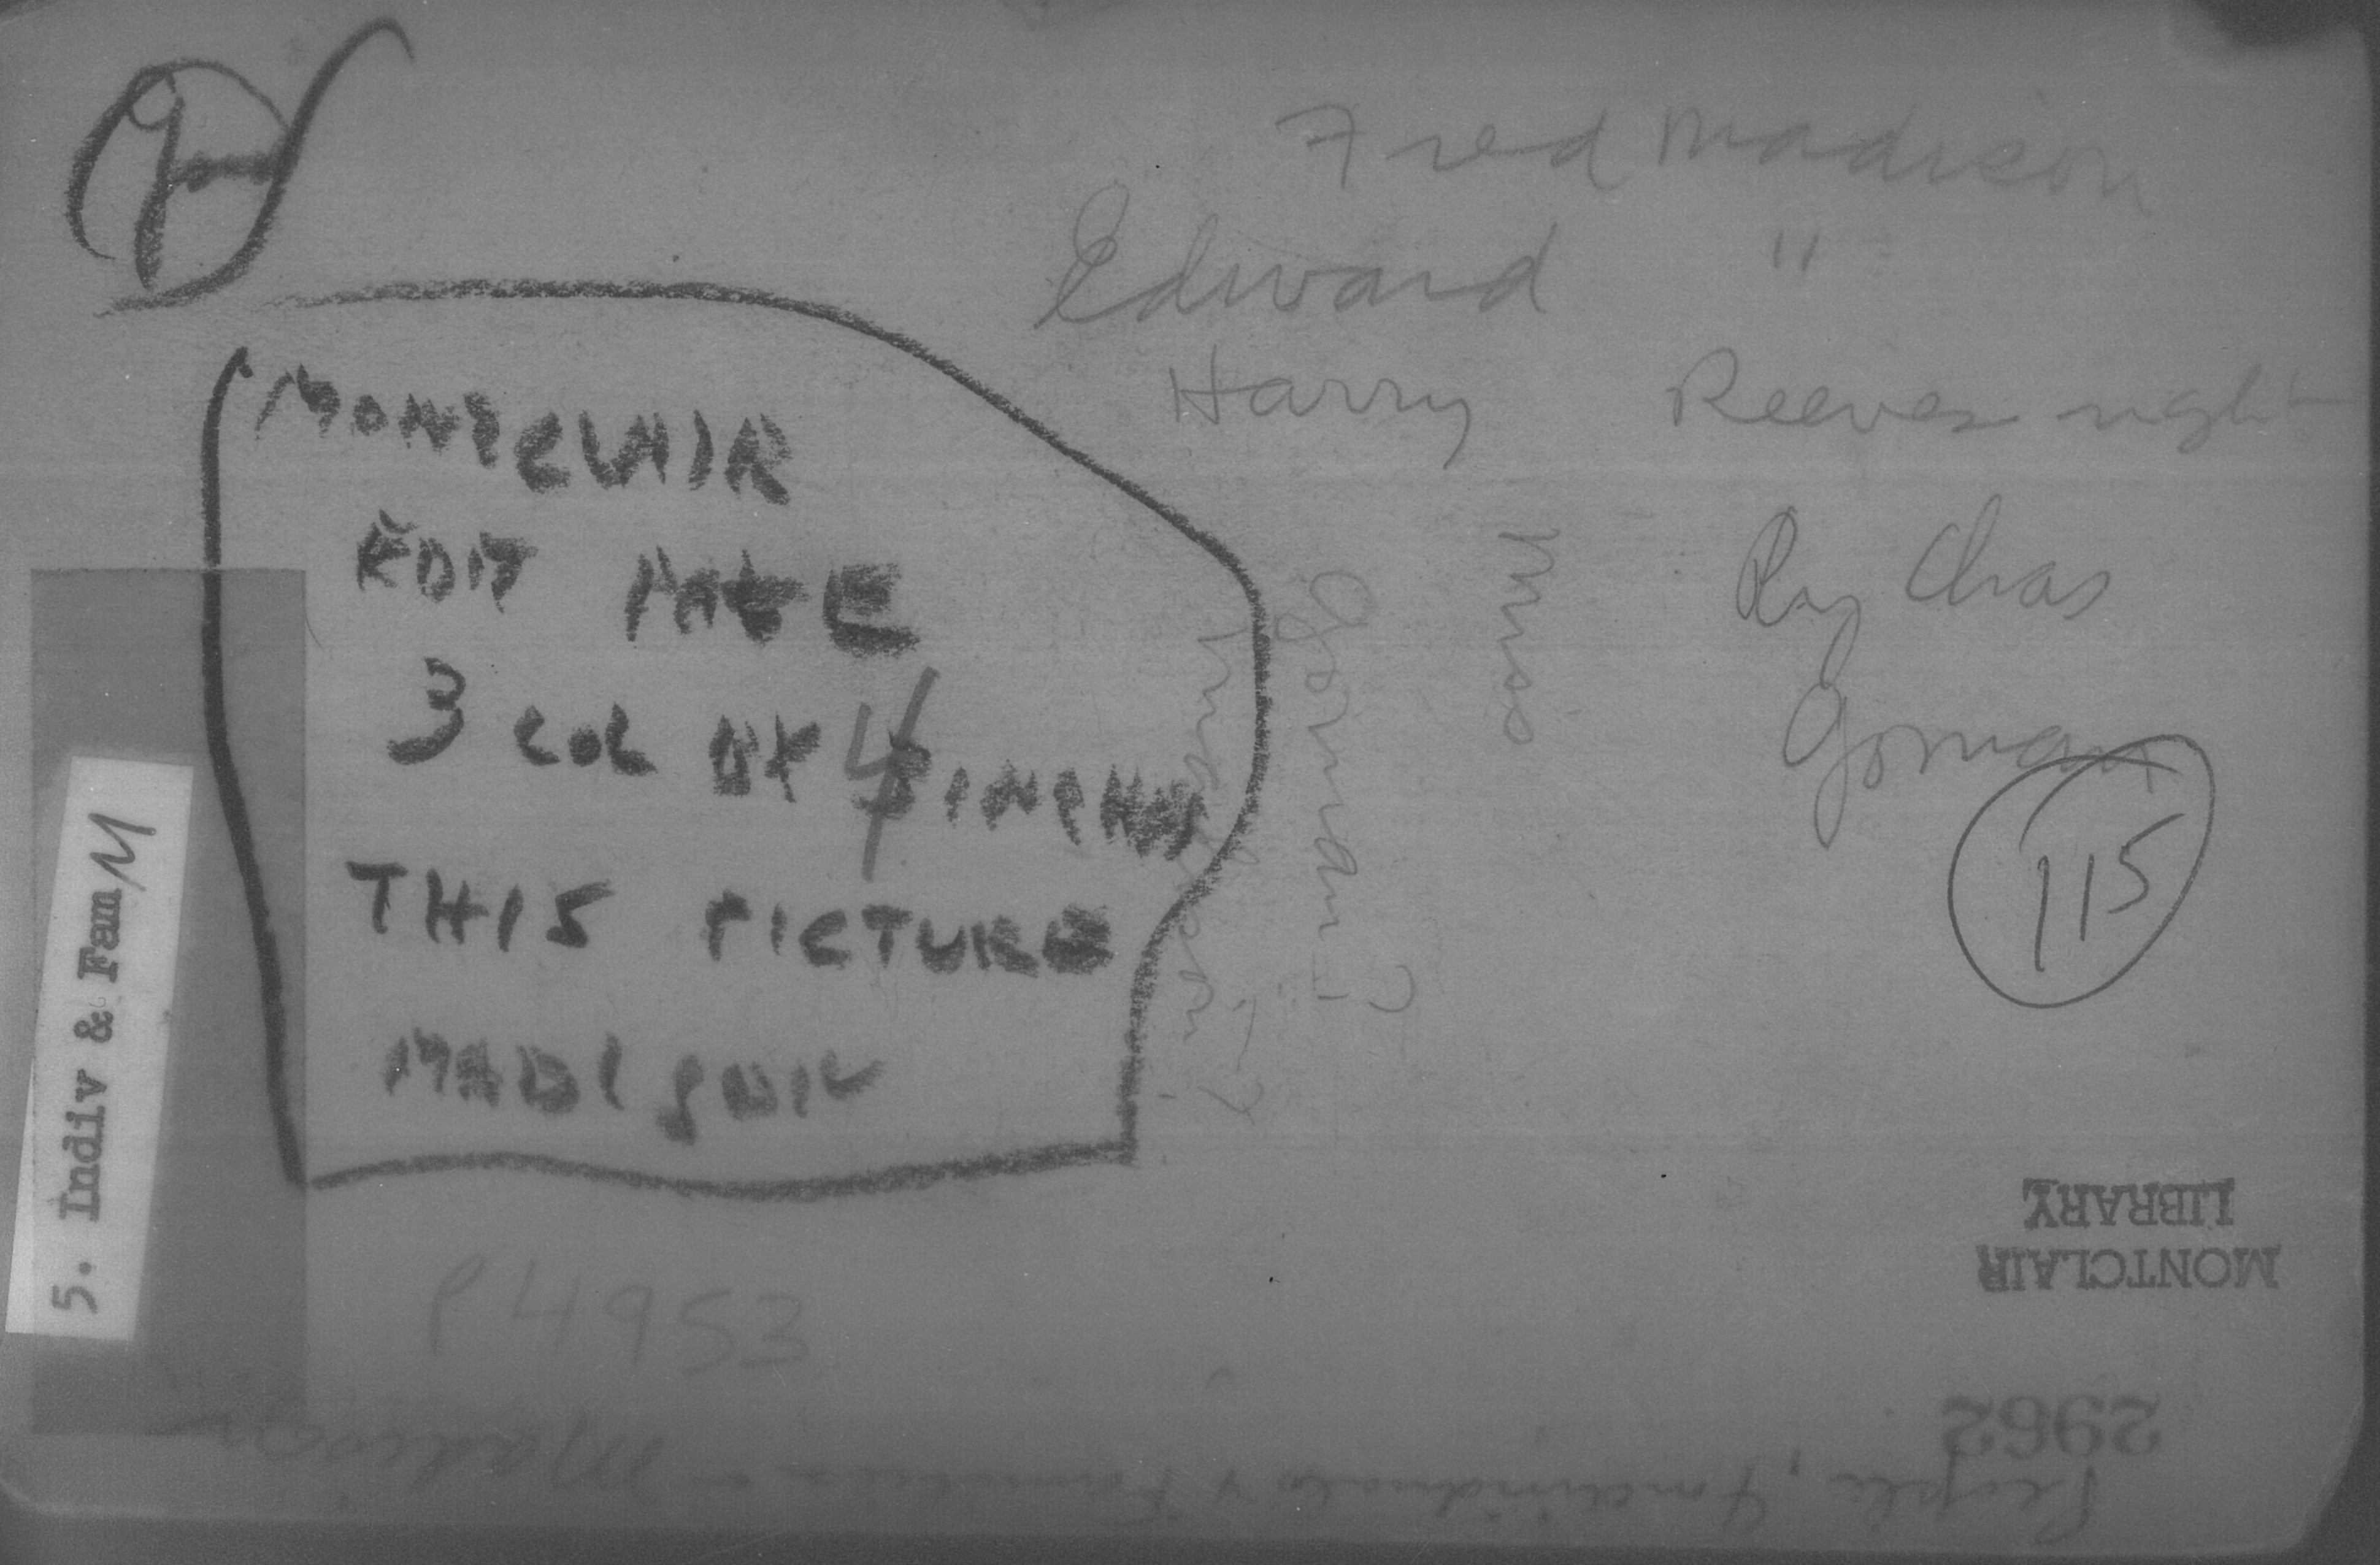 Fred Madison
Edward "
Harry Reeves right
MONTCLAIR
EDIT PAGE
3 COL BY 4 INCHES
THIS PICTURE
MADISON
Chas
Gorman
Mrs
Gorman ?
115
5. Indiv & Fam M
P4953
MONTCLAIR
LIBRARY
2962
People, Individuals & Families - Madison